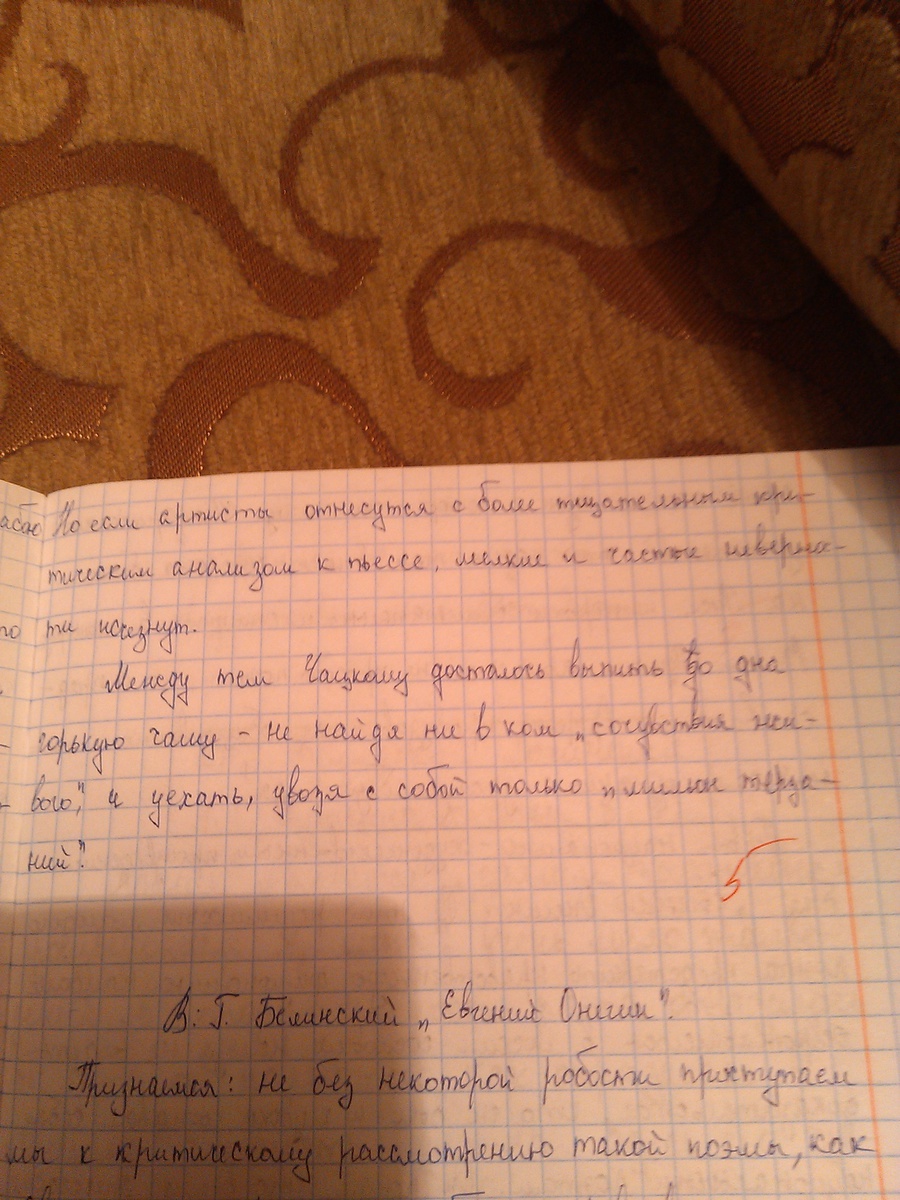 абаю Но если артисты отнесутся с более тщательным кри-
тическим анализом к пьессе, мелкие и частые неверно-
то ти исчезнут.
Между тем Чацкому досталось выпить до дна
горькую чашу - не найдя ни в ком „сочувствия жи-
вого", и уехать, увозя с собой только „мильон терза-
ний".
5
В. Г. Белинский „Евгений Онегин".
Признаемся: не без некоторой робости приступаем
мы к критическому рассмотрению такой поэмы, как